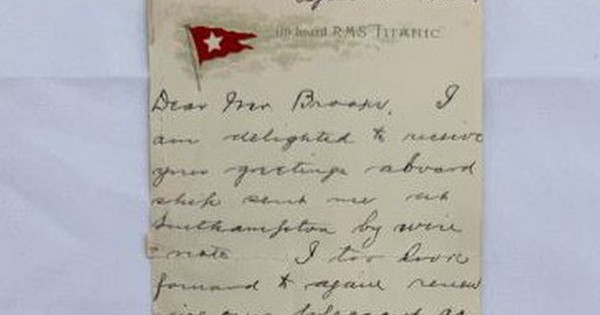 On board R.M.S. TITANIC
Dear Mr Brooks, I
am delighted to receive
your greetings aboard
ship sent me at
Southampton by wire
note. I too look
forward to again